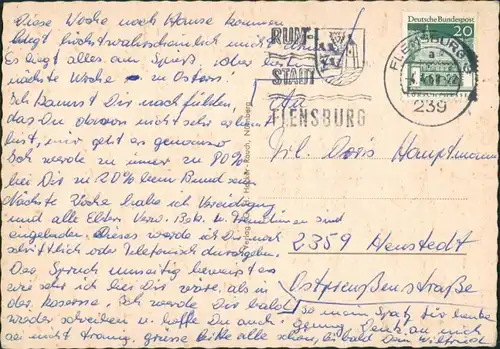 Diese Woche nach Hause kommen
liegt höchstwahrscheinlich nicht
Es liegt alles am Spieß, aber
nächste Woche in Ostern!
Ich kannst Dir nachfühlen,
das Du davon nicht sehr erbaut
bist, mir geht es genauso
Ich werde zu immer zu 80%
bei Dir u. 20% beim Bund sein
Nächste Woche habe ich Vereidigung
und alle Eltern, Verw. Bek. u. sind
eingeladen. Dieses werde ich Dir noch
schriftlich oder Telefonisch durchgeben.
Der Spruch umseitig beweist es
wie sehr ich bei Dir wäre, als in
der Kaserne. Ich werde Dir bald
wieder schreiben u. hoffe Du auch!
sei nicht traurig, grüsse bitte alle schön, bis bald Dein Wilfried
So mein Spatz für heute
Denk an mich
Verlag Rauch, Nürnberg
RUM-
STADT
FLENSBURG
Deutsche Bundespost
20
FLENSBURG
a
239
An
Frl. Doris Hauptmann
2359 Henstedt
Ostpreußenstraße